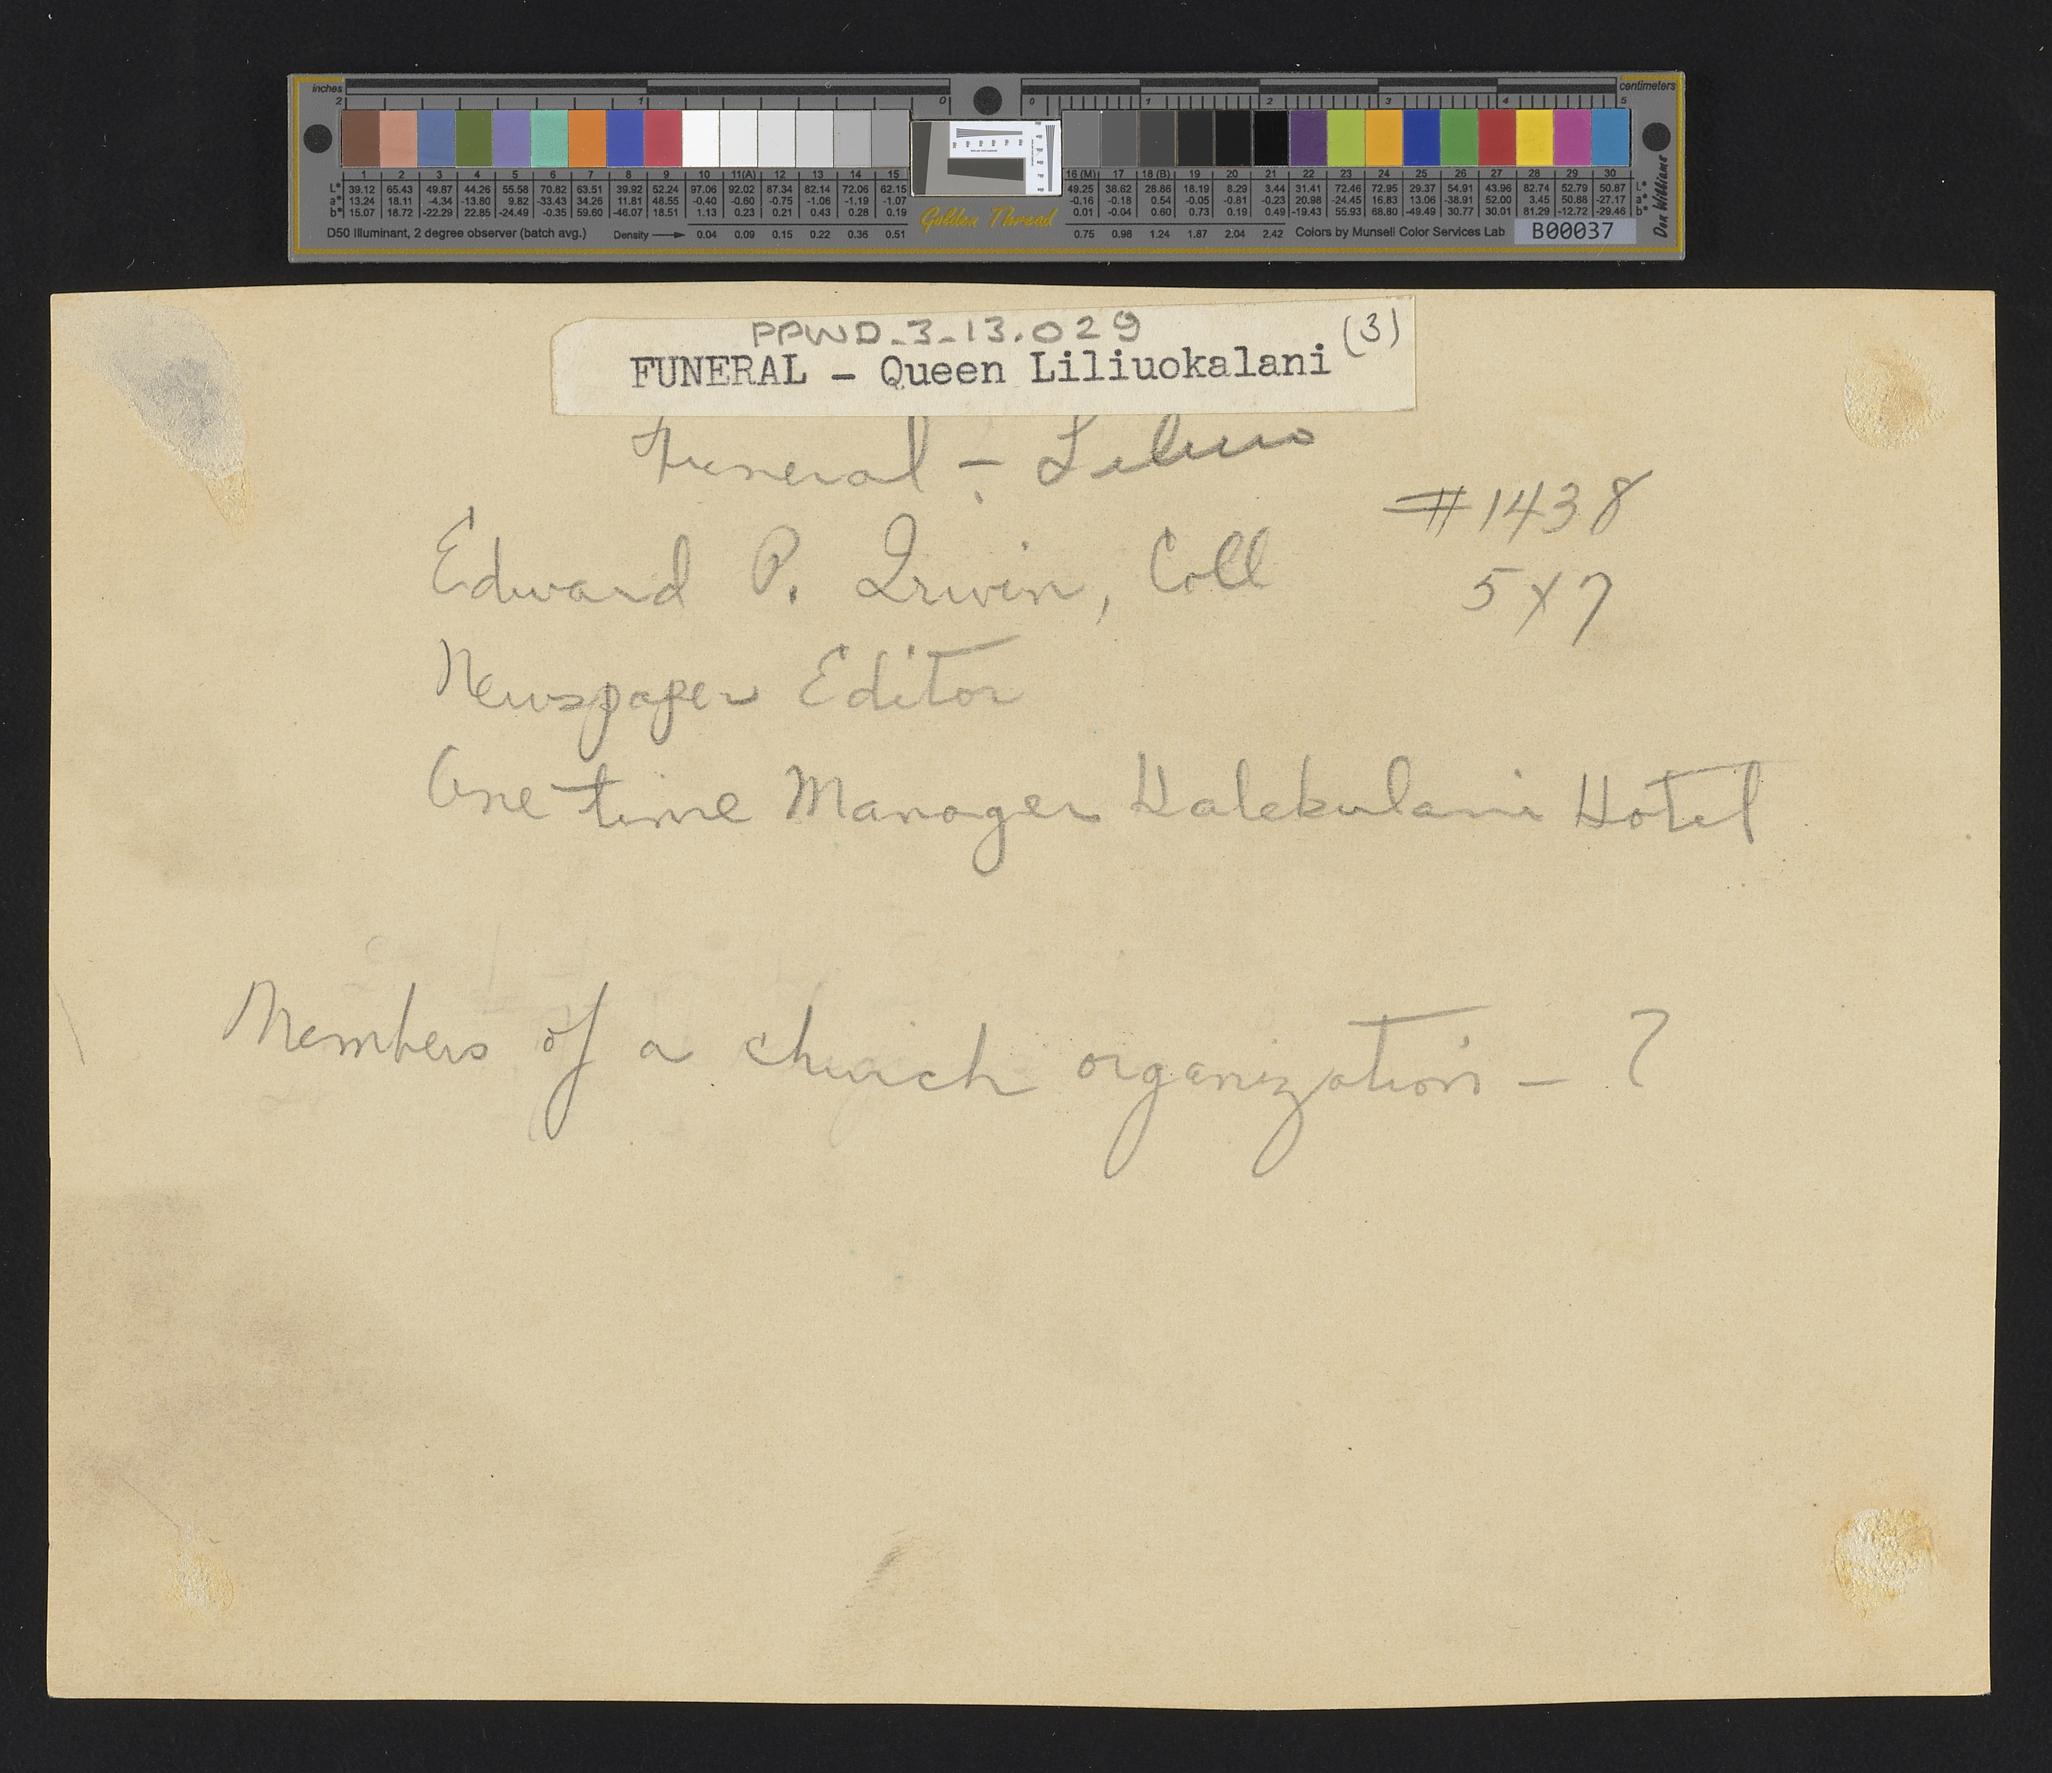 inches
centimeters
2 1 0 0 1 2 3 4 5
1 2 3 4 5 6 7 8 9 10 11(A) 12 13 14 15 16 (M) 17 18 (B) 19 20 21 22 23 24 25 26 27 28 29 30
L* 39.12 65.43 49.87 44.26 55.58 70.82 63.51 39.92 52.24 97.06 92.02 87.34 82.14 72.06 62.15 49.25 38.62 28.86 18.19 8.29 3.44 31.41 72.46 72.95 29.37 54.91 43.96 82.74 52.79 50.87 L*
a* 13.24 18.11 -4.34 -13.80 9.82 -33.43 34.26 11.81 48.55 -0.40 -0.60 -0.75 -1.06 -1.19 -1.07 -0.16 -0.18 0.54 -0.05 -0.81 -0.23 20.98 -24.45 16.83 13.06 -38.91 52.00 3.45 50.88 -27.17 a*
b* 15.07 18.72 -22.29 22.85 -24.49 -0.35 59.60 -46.07 18.51 1.13 0.23 0.21 0.43 0.28 0.19 0.01 -0.04 0.60 0.73 0.19 0.49 -19.43 55.93 68.80 -49.49 30.77 30.01 81.29 -12.72 -29.46 b*
D50 Illuminant, 2 degree observer (batch avg.) Density 0.04 0.09 0.15 0.22 0.36 0.51 Golden Thread 0.75 0.98 1.24 1.87 2.04 2.42 Colors by Munsell Color Services Lab B00037
Don Williams
PPWD_3_13.029
FUNERAL - Queen Liliuokalani (3)
Funeral -
#1438
Edward P. Irwin, Coll
5 x 7
Newspaper Editor
One time Manager Halekulani Hotel
Members of a church organization - ?